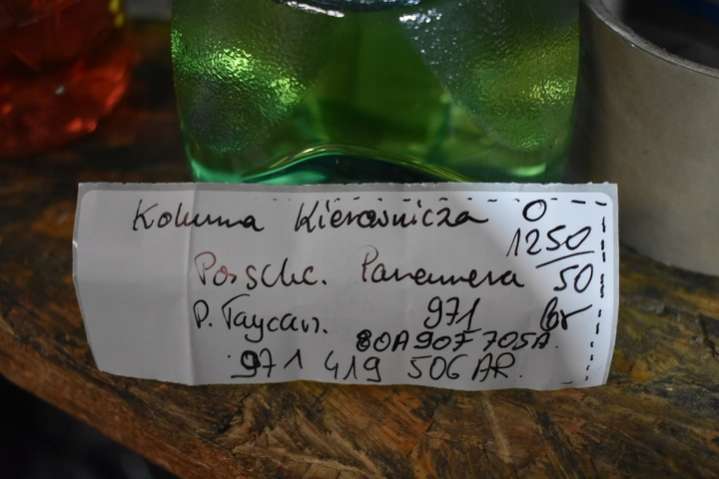 Kolumna Kierownicza O
1250
Porsche. Panamera 50
P. Taycan. 971
80A907705A.
971 419 506 AR.